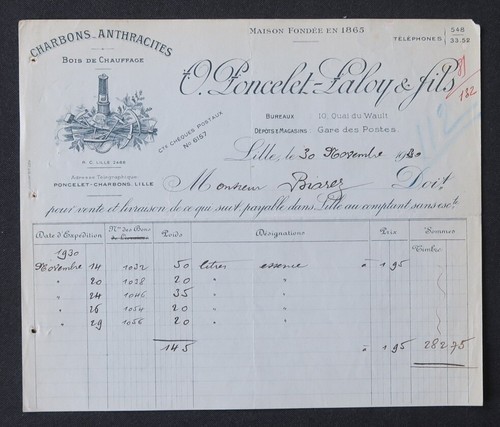 MAISON FONDÉE EN 1865
TÉLÉPHONES 548
33.52
CHARBONS_ANTHRACITES
BOIS DE CHAUFFAGE
O. Poncelet-Laloy & fils
81
132
112
BUREAUX 10, Quai du Wault
DÉPÔTS & MAGASINS Gare des Postes
CTE CHÈQUES POSTAUX
No 6157
R. C. LILLE
Adresse Télégraphique:
PONCELET-CHARBONS, LILLE
Lille, le 30 Novembre 1930
Monsieur Doit
pour vente et livraison de ce qui suit, payable dans Lille au comptant sans escte
Date d'Expédition Nos des Bons Poids Désignations Prix Sommes
de Livraison
1930 Timbre
Novembre 14 1032 50 litres essence à 1 95
" 20 1038 20 " "
" 24 1046 35 " "
" 26 1054 20 " "
" 29 1056 20 " "
145 à 1 95 282 75